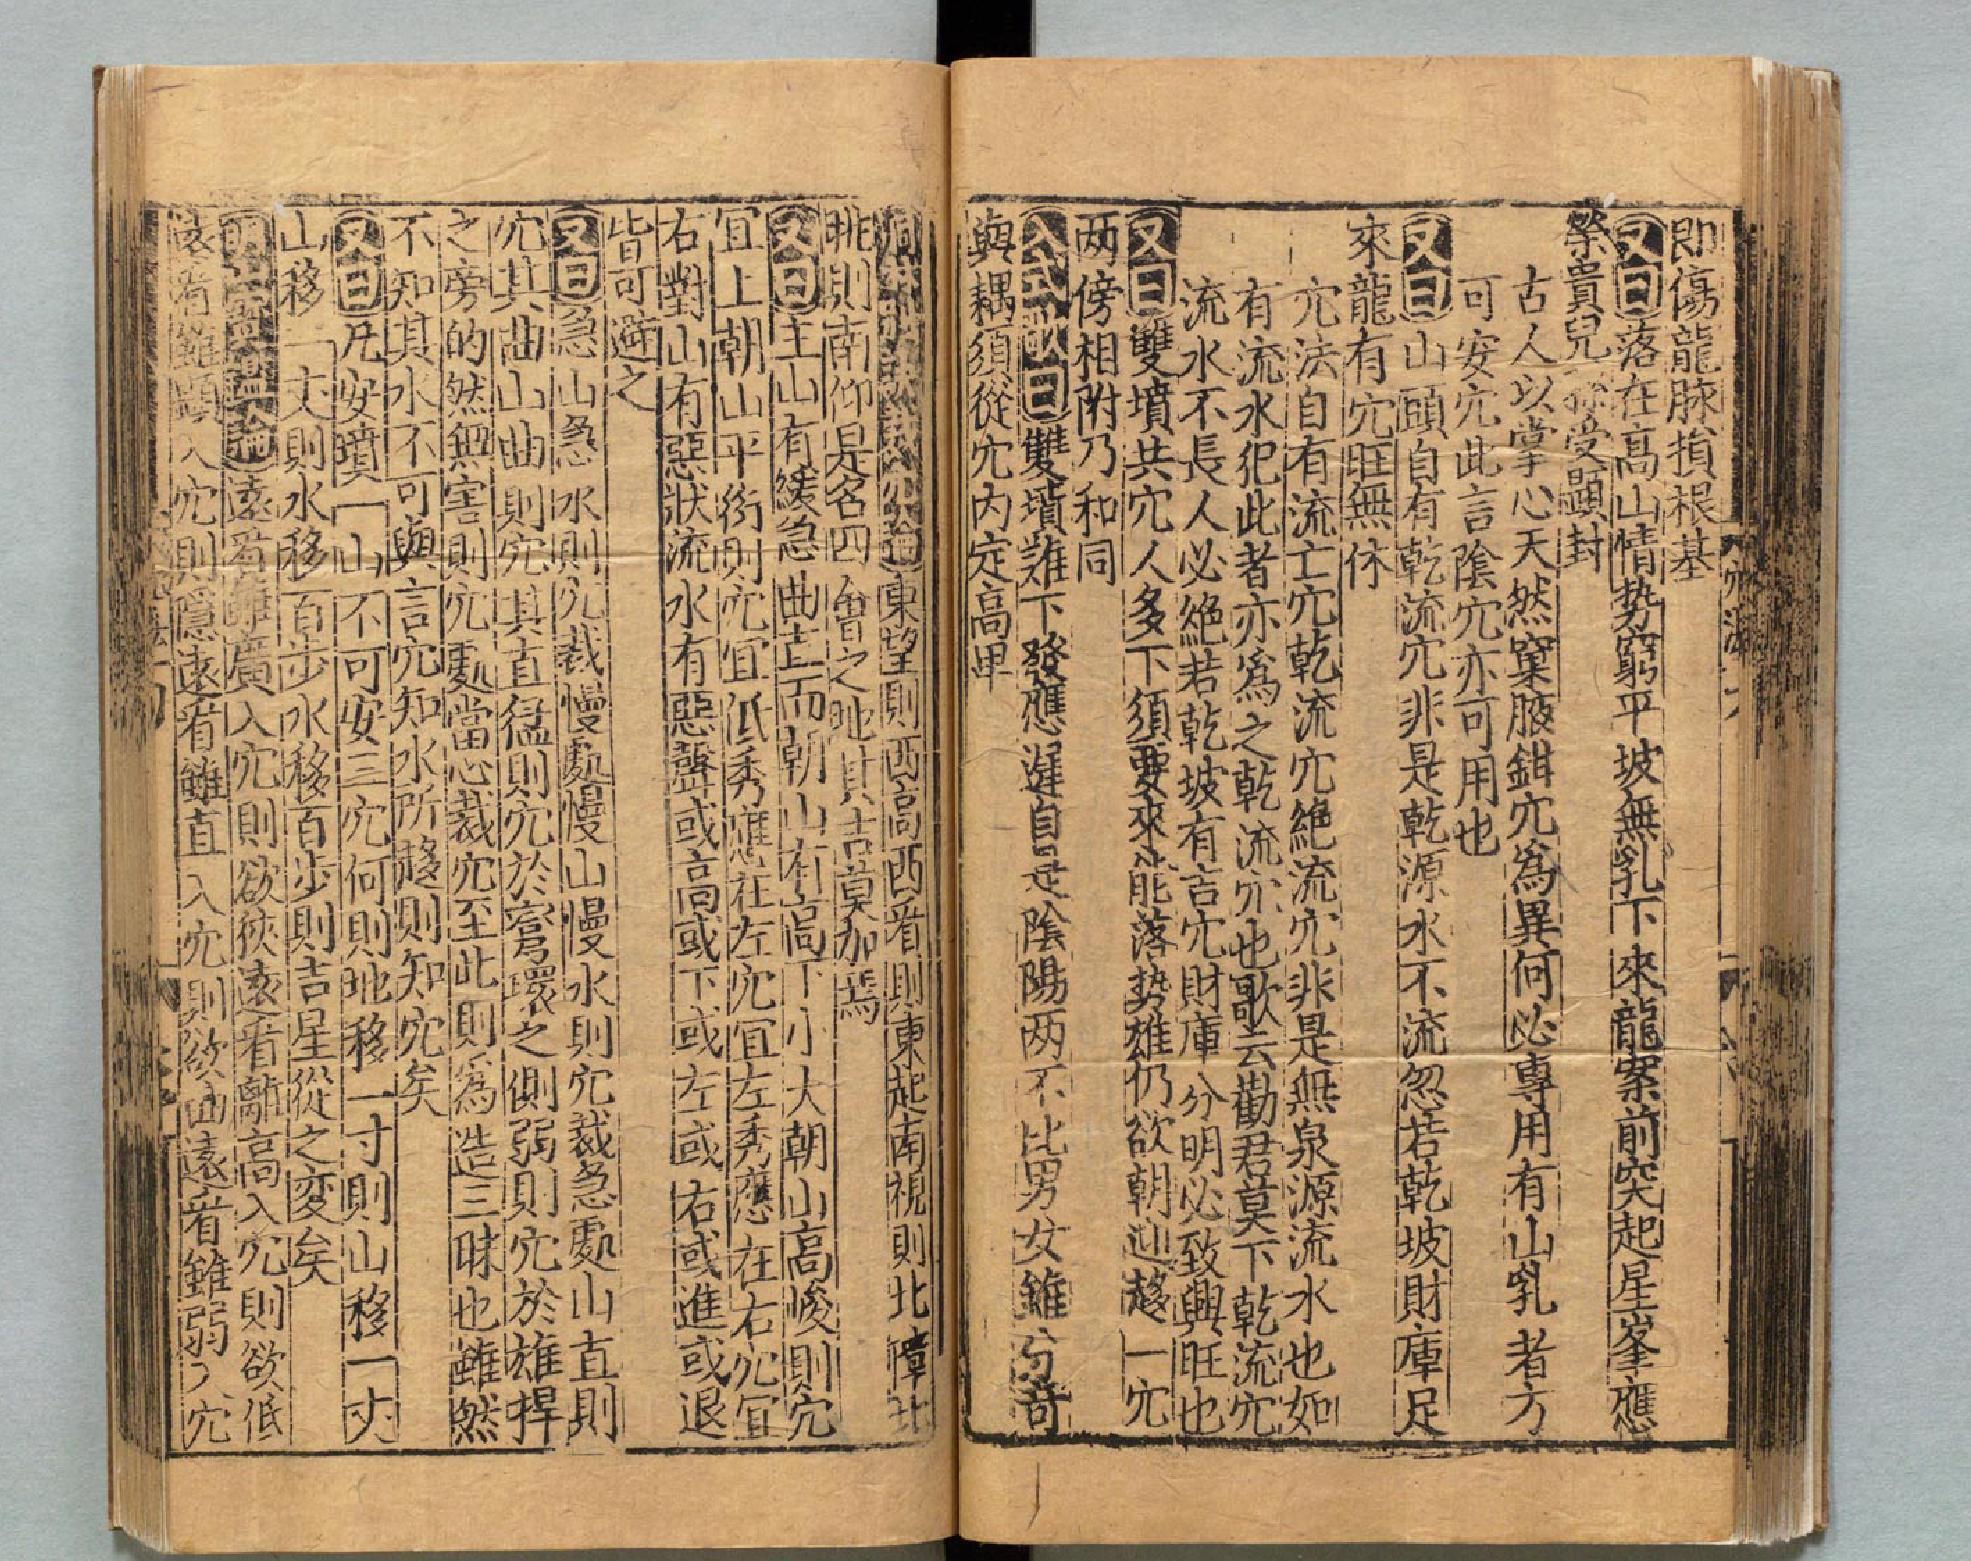 即傷龍脉損根基
又曰落在高山情势窮平坡無乳下來龍案前突起星峯應
榮貴兒孫受顕封
古人以掌心天然窠腋鉗穴爲異何必専用有山乳者方
可安穴此言陰穴亦可用也
又曰山頭自有乾流穴非是乾源水不流忽若乾坡財庫足
來龍有穴旺無休
穴法自有流亡穴乾流穴絶流穴非是無泉源流水也如
有流水犯此者亦爲之乾流穴也歌云勸君莫下乾流穴
流水不長人必絶若乾坡有吉穴財庫分明必致興旺也
又曰雙墳共穴人多下須要來龍落势雄仍欲朝迎趍一穴
两傍相附乃和同
歌曰雙墳難下發應遲自是陰陽两不比男女雖分奇
與耦須從穴内定高卑
東望則西高西看則東起南視則北障北
眺則南仰是名四會之地其吉莫加焉
又曰主山有緩急曲直而朝山有高下小大朝山高峻則穴
宜上朝山平衍則穴宜低秀應在左穴宜左秀應在右穴宜
右對山有惡狀流水有惡聲或高或下或左或右或進或退
皆可避之
又曰急山急水則穴裁慢處慢山慢水則穴裁急處山直則
穴其曲山曲則穴其直猛則穴於窩環之側弱則穴於雄捍
之旁的然無害則穴處當心裁穴至此則爲造三昧也雖然
不知其水不可與言穴知水所趍則知穴矣
又曰凡安墳一山不可安三穴何則地移一寸則山移一丈
山移一丈則水移百步水移百步則吉星從之変矣
論遠看雖廣入穴則欲狹遠看雖高入穴則欲低
遠看雖顕入穴則隱遠看雖直入穴則欲曲遠看雖弱入穴